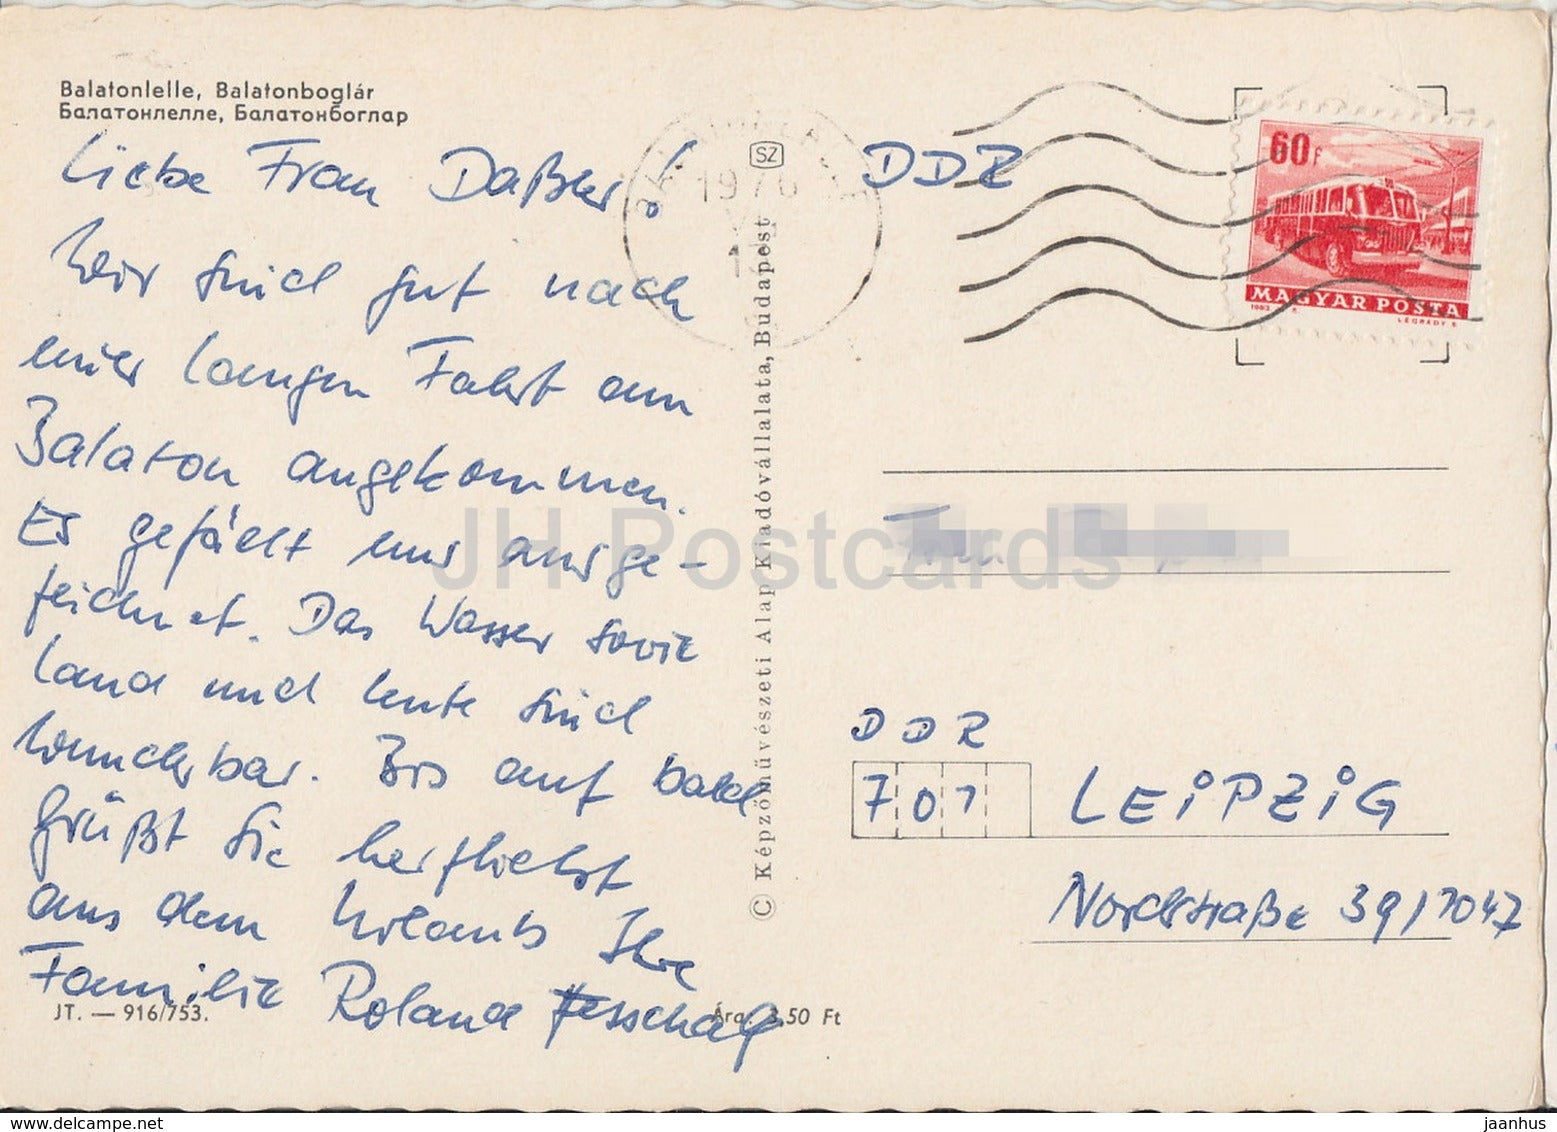 Balatonlelle, Balatonboglár
Балатонлелле, Балатонбоглар
Liebe Frau Daßler!
Wir sind gut nach
einer langen Fahrt am
Balaton angekommen.
Es gefällt uns ausge-
zeichnet. Das Wasser sowie
Land und Leute sind
wunderbar. Bis auf bald
grüßt Sie herzlichst
aus dem Urlaub Ihre
Familie Roland
JT. — 916/753.
Ára 3,50 Ft
SZ
© Képzőművészeti Alap Kiadóvállalata, Budapest
1976
DDR
60 f
MAGYAR POSTA
1963
LÉGRÁDY S.
Frau
DDR
701 LEiPZiG
Nordstraße 39/7047
JH Postcards
www.delcampe.net
jaanhus